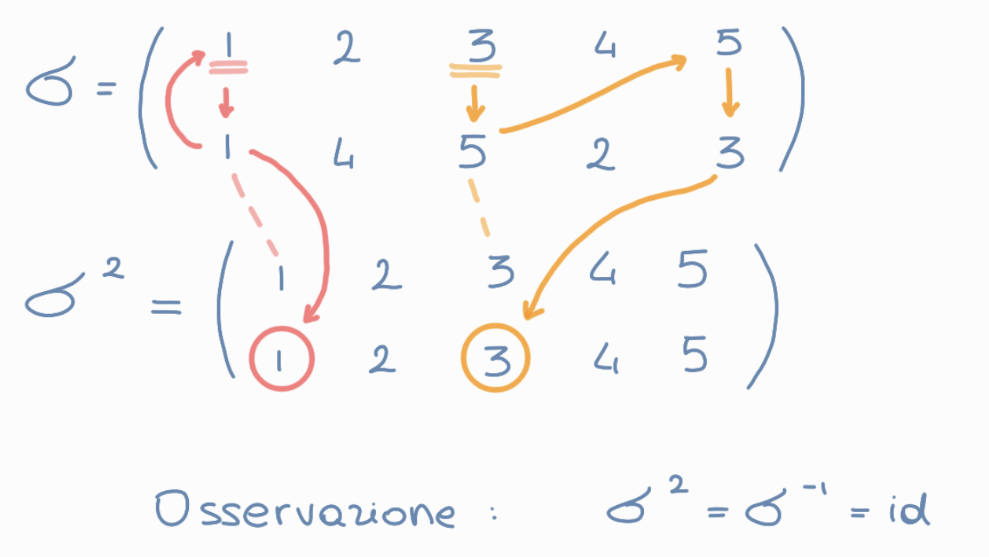 σ = ( 1 2 3 4 5 )
1 4 5 2 3
σ² = ( 1 2 3 4 5 )
1 2 3 4 5
Osservazione : σ² = σ⁻¹ = id